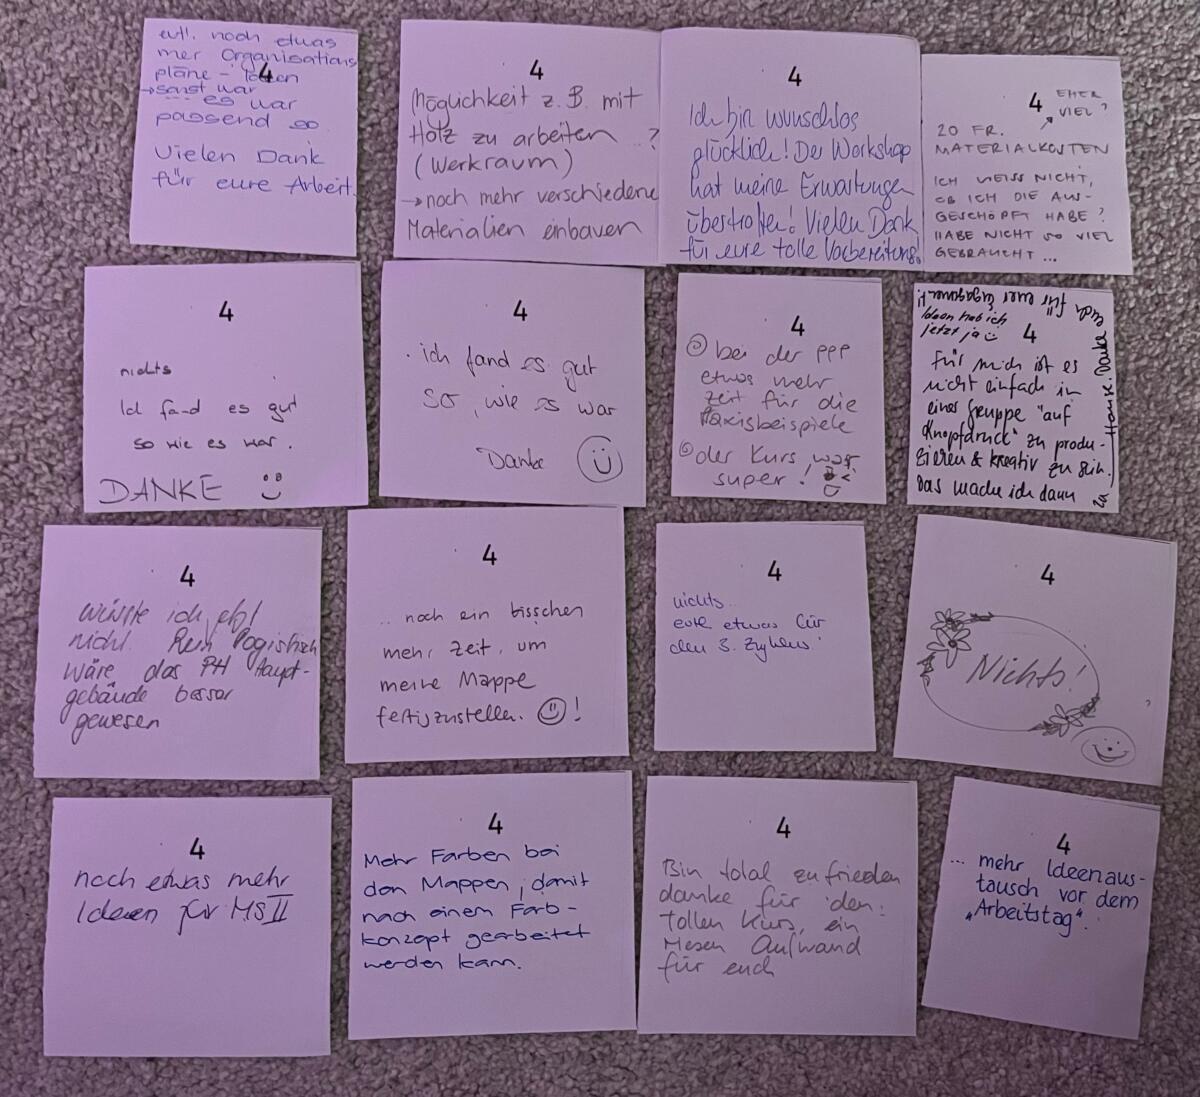 evtl. noch etwas
mer Organisations
pläne -
4
→ sonst war
es war
passend so
Vielen Dank
für eure Arbeit.
4
Möglichkeit z. B. mit
Holz zu arbeiten ..?
(Werkraum)
→ noch mehr verschiedene
Materialien einbauen
4
Ich bin wunschlos
glücklich! Der Workshop
hat meine Erwartungen
übertroffen! Vielen Dank
für eure tolle Vorbereitung!
4
EHER
VIEL?
20 FR.
MATERIALKOSTEN
ICH WEISS NICHT,
OB ICH DIE AUS-
GESCHÖPFT HABE?
HABE NICHT SO VIEL
GEBRAUCHT ...
4
nichts
Ich fand es gut
so wie es war.
DANKE
4
ich fand es gut
so, wie es war
Danke
4
bei der PPP
etwas mehr
zeit für die
Praxisbeispiele
der Kurs war
super!
4
Für mich ist es
nicht einfach in
einer Gruppe "auf
Knopfdruck" zu produ-
zieren & kreativ zu sein.
Das mache ich dann
zu Hause. Danke
euch für euer Engagement!
Ideen hab ich
jetzt ja
4
wüsste ich jetzt
nicht. Rein logistisch
wäre das PH Haupt-
gebäude besser
gewesen
4
... noch ein bisschen
mehr Zeit, um
meine Mappe
fertigzustellen. !
4
nichts...
evtl. etwas für
den 3. Zyklus
4
Nichts!
4
noch etwas mehr
Ideen für MS II
4
Mehr Farben bei
den Mappen, damit
nach einem Farb-
konzept gearbeitet
werden kann.
4
Bin total zufrieden
danke für den
tollen Kurs, ein
riesen Aufwand
für euch
4
... mehr Ideenaus-
tausch vor dem
„Arbeitstag“.